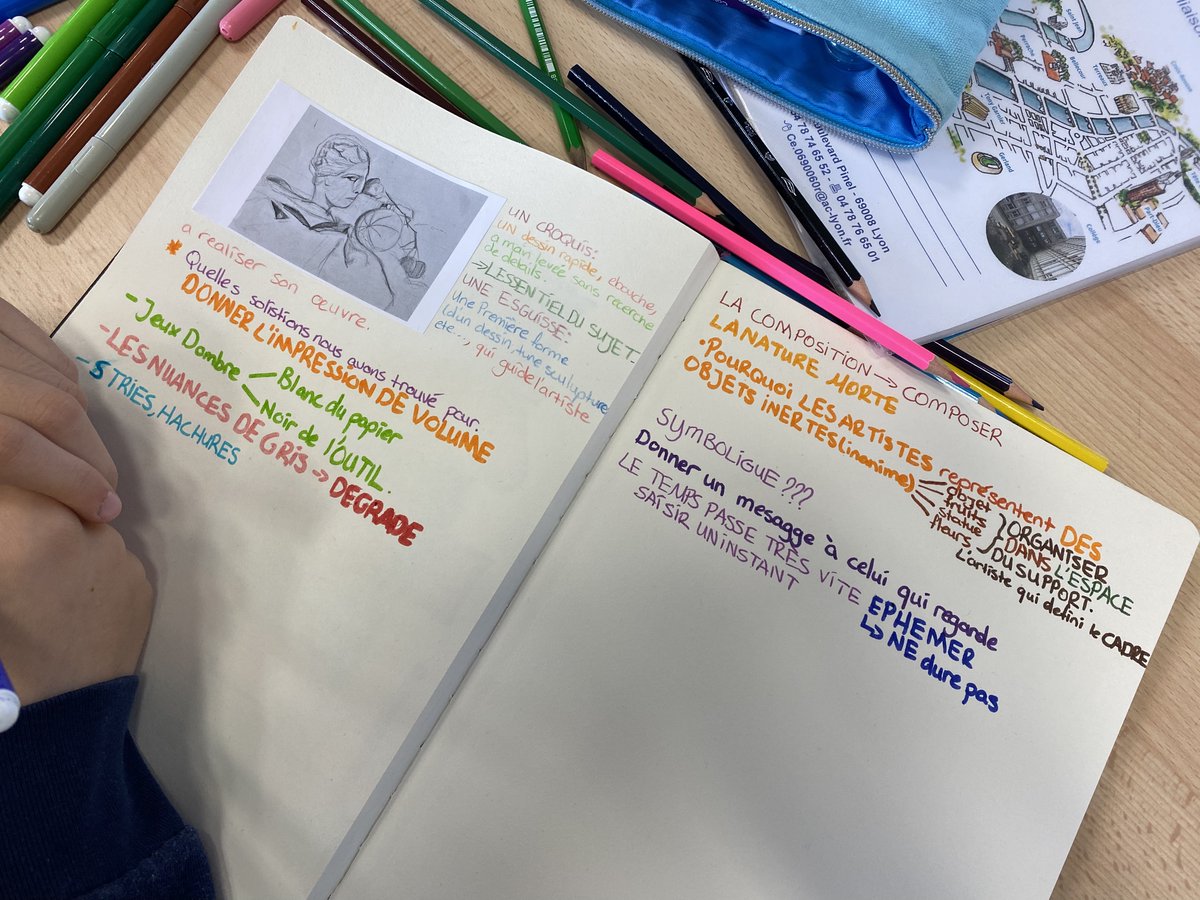 UN CROQUIS:
un dessin rapide, ébauche,
a main levée sans recerche
de détails.
→ L'ESSENTIEL DU SUJET.
UNE ESGUISSE:
Une Première forme
(d'un dessin, d'une sculupture
etc..., qui guide l'artiste
a realiser son œuvre.
* Quelles solistions nous avons trouvé pour.
DONNER L'IMPRESSION DE VOLUME
- Jeux Dombre
Blanc du papier
Noir de l'OUTIL.
- LES NUANCES DE GRIS → DEGRADE
- STRIES, HACHURES
LA COMPOSITION → COMPOSER
LA NATURE MORTE
• Pourquoi LES ARTISTES représentent DES
OBJETS INERTES (inanime)
objet
fruits
statue
fleurs
ORGANISER
DANS L'ESPACE
DU SUPPORT.
L'artiste qui defini le CADRE
SYMBOLIGUE ???
Donner un mesagge à celui qui regarde
LE TEMPS PASSE TRÈS VITE EPHEMER
↳ NE dure pas
SAISIR UN INSTANT
boulevard Pinel - 69008 Lyon
04 78 74 65 52 - 04 78 76 65 01
Ce.0690060r@ac-lyon.fr
Collège